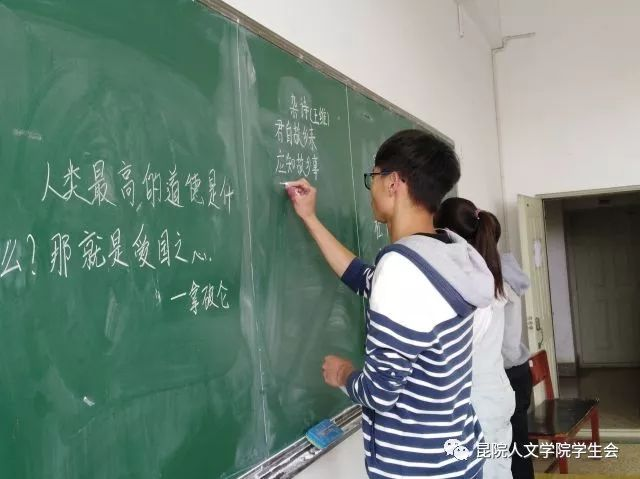 人类最高的道德是什
么?那就是爱国之心.
一拿破仑
杂诗(王维)
君自故乡来
应知故乡事
昆院人文学院学生会